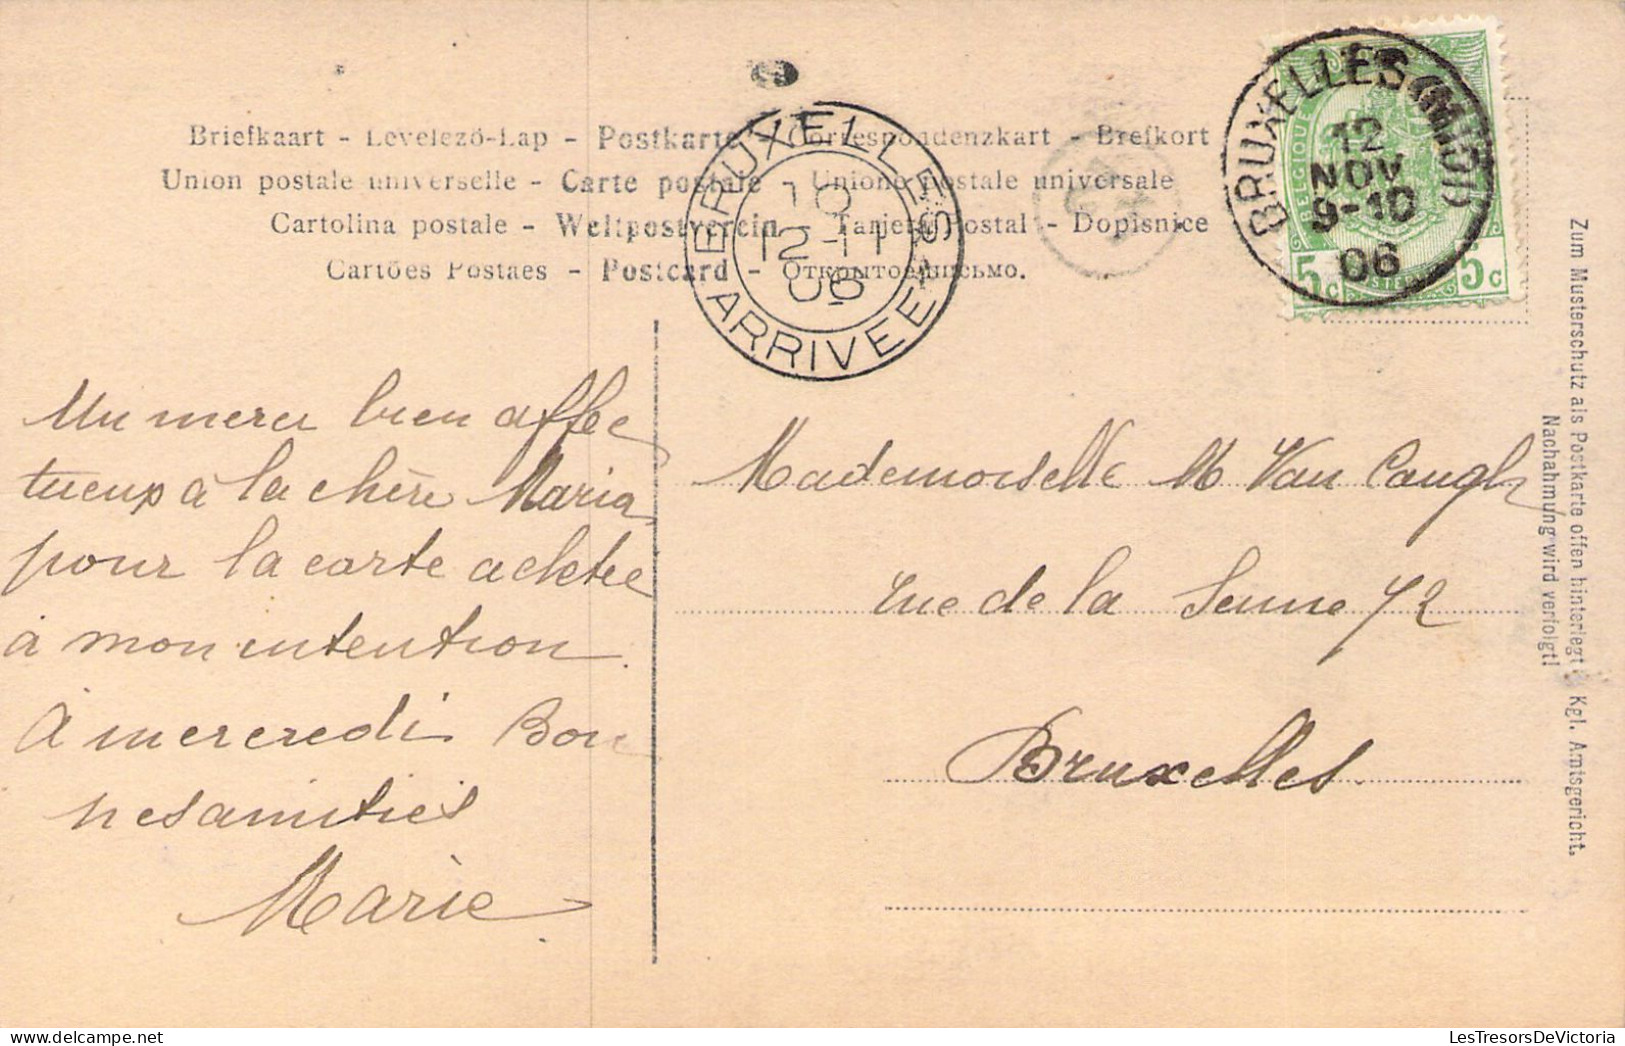 Briefkaart - Levelező-Lap - Postkarte - Correspondenzkart - Brefkort
Union postale universelle - Carte postale - Unione postale universale
Cartolina postale - Weltpostverein - Tarjeta Postal - Dopisnice
Cartões Postaes - Postcard - Открытое письмо.
BRUXELLES
10
12-11
06
ARRIVEE
BRUXELLES (MIDI)
12
NOV
9-10
06
BELGIQUE
5c
5c
Un merci bien affec
tueux à la chère Maria
pour la carte achetée
à mon intention.
A mercredi Bon
nes amitiés
Marie
Mademoiselle M Van Caugh
rue de la Senne 72
Bruxelles
Zum Musterschutz als Postkarte offen hinterlegt. Kgl. Amtsgericht.
Nachahmung wird verfolgt!
LesTresorsDeVictoria.com